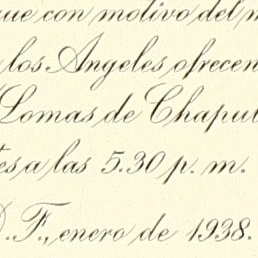 que con motivo del m
los Angeles ofrecen
Lomas de Chapul
es a las 5.30 p. m.
D. F., enero de 1938.